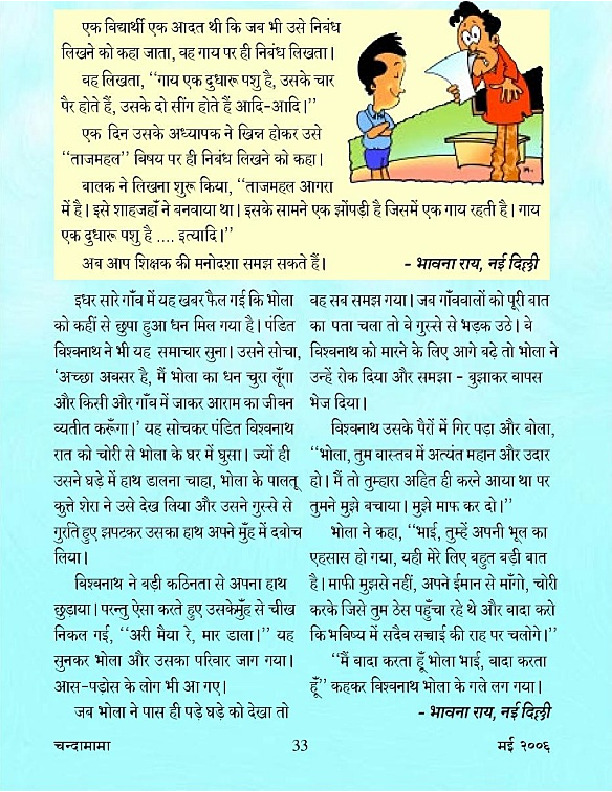 एक विद्यार्थी एक आदत थी कि जब भी उसे निबंध
लिखने को कहा जाता, वह गाय पर ही निबंध लिखता।
वह लिखता, ‘‘गाय एक दुधारू पशु है, उसके चार
पैर होते हैं, उसके दो सींग होते हैं आदि-आदि।’’
एक दिन उसके अध्यापक ने खिन्न होकर उसे
‘‘ताजमहल’’ विषय पर ही निबंध लिखने को कहा।
बालक ने लिखना शुरू किया, ‘‘ताजमहल आगरा
में है। इसे शाहजहाँ ने बनवाया था। इसके सामने एक झोंपड़ी है जिसमें एक गाय रहती है। गाय
एक दुधारू पशु है .... इत्यादि।’’
अब आप शिक्षक की मनोदशा समझ सकते हैं।
- भावना राय, नई दिल्ली
इधर सारे गाँव में यह खबर फैल गई कि भोला
को कहीं से छुपा हुआ धन मिल गया है। पंडित
विश्वनाथ ने भी यह समाचार सुना। उसने सोचा,
‘अच्छा अवसर है, मैं भोला का धन चुरा लूँगा
और किसी और गाँव में जाकर आराम का जीवन
व्यतीत करूँगा।’ यह सोचकर पंडित विश्वनाथ
रात को चोरी से भोला के घर में घुसा। ज्यों ही
उसने घड़े में हाथ डालना चाहा, भोला के पालतू
कुत्ते शेरा ने उसे देख लिया और उसने गुस्से से
गुर्राते हुए झपटकर उसका हाथ अपने मुँह में दबोच
लिया।
विश्वनाथ ने बड़ी कठिनता से अपना हाथ
छुड़ाया। परन्तु ऐसा करते हुए उसकेमुँह से चीख
निकल गई, ‘‘अरी मैया रे, मार डाला।’’ यह
सुनकर भोला और उसका परिवार जाग गया।
आस-पड़ोस के लोग भी आ गए।
जब भोला ने पास ही पड़े घड़े को देखा तो
वह सब समझ गया। जब गाँववालों को पूरी बात
का पता चला तो वे गुस्से से भड़क उठे। वे
विश्वनाथ को मारने के लिए आगे बढ़े तो भोला ने
उन्हें रोक दिया और समझा - बुझाकर वापस
भेज दिया।
विश्वनाथ उसके पैरों में गिर पड़ा और बोला,
‘‘भोला, तुम वास्तव में अत्यंत महान और उदार
हो। मैं तो तुम्हारा अहित ही करने आया था पर
तुमने मुझे बचाया। मुझे माफ कर दो।’’
भोला ने कहा, ‘‘भाई, तुम्हें अपनी भूल का
एहसास हो गया, यही मेरे लिए बहुत बड़ी बात
है। माफी मुझसे नहीं, अपने ईमान से माँगो, चोरी
करके जिसे तुम ठेस पहुँचा रहे थे और वादा करो
कि भविष्य में सदैव सच्चाई की राह पर चलोगे।’’
‘‘मैं वादा करता हूँ भोला भाई, वादा करता
हूँ’’ कहकर विश्वनाथ भोला के गले लग गया।
- भावना राय, नई दिल्ली
चन्दामामा 33 मई २००६